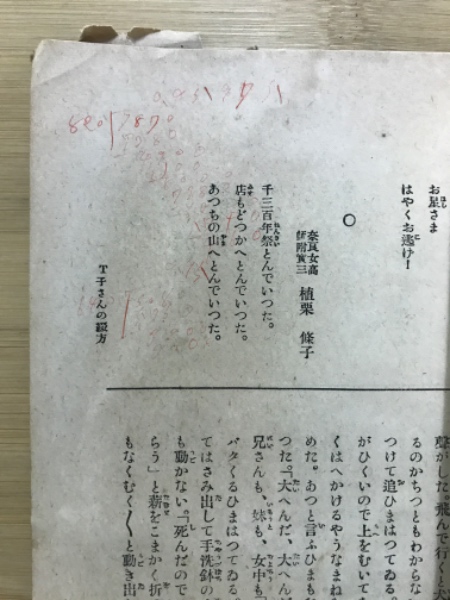 お星さま
はやくお逃げ!
○
奈良女高
師附實三 植栗 條子
千三百年祭とんでいつた。
店もどつかへとんでいつた。
あつちの山へとんでいつた。
T子さんの綴方
聲がした。飛んで行くと大
るのかちつともわからな
つけて追ひまはつてゐる。
がひくいので上をむいて
くはへかけるやうなまね
めた。あつと言ふひまも
つた。「大へんだ、大へんだ
兄さんも、妹も、女中も「
バタくるひまはつてゐる。
てはさみ出して手洗鉢の
も動かない。「死んだので
らう」と薪をこまかく折
もなくむく〱と動き出